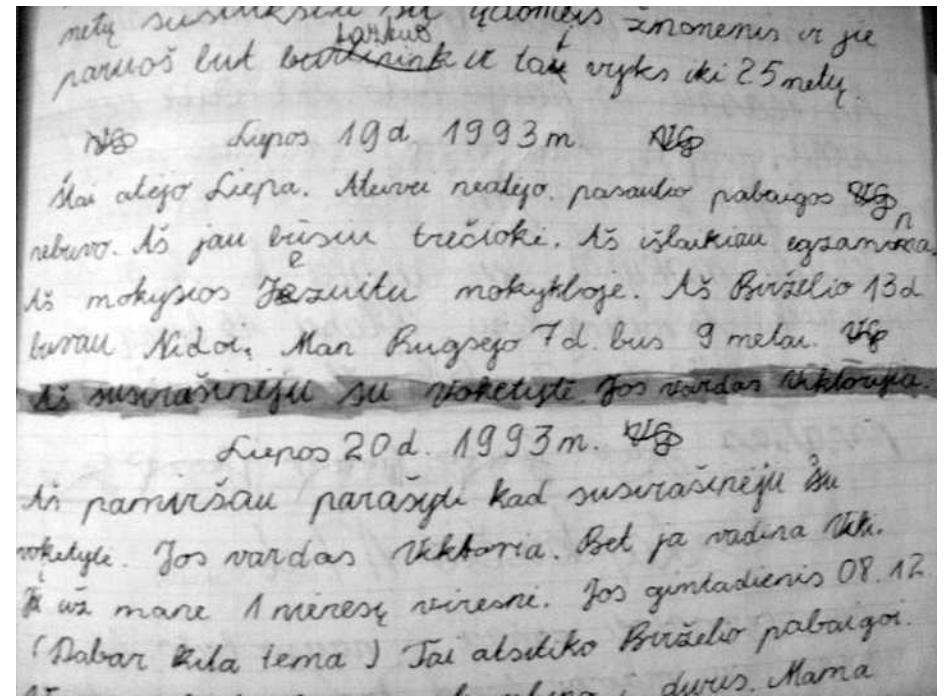 metų susitiksiu su įdomeis žmonemis ir jie
tarkuo
paruoš but bit ir tai vyks iki 25 metų
Liepos 19d. 1993m.
Štai atėjo Liepa. Ateivei neatėjo. pasaulio pabaigos
nebuvo. Aš jau būsiu trečiokė. Aš išlaikiau egzaminą.
Aš mokysios Jėzuitu mokykloje. Aš Birželio 13d
buvau Nidoi. Man Rugsejo 7d. bus 9 metai.
Aš susirašinėju su vokietyte. Jos vardas Viktorija.
Liepos 20d. 1993m.
Aš pamiršau parašyti kad susirašinėju su
vokietyte. Jos vardas Viktoria. Bet ja vadina Viki.
Ji už mane 1 mėnesį vyresnė. Jos gimtadienis 08.12
(Dabar kita tema) Tai atsitiko Birželio pabaigoi.
į duris. Mama